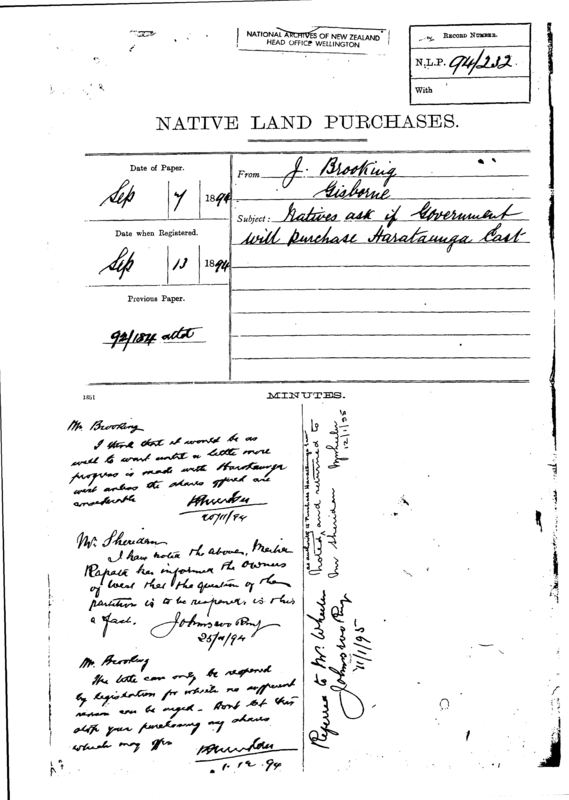 NATIONAL ARCHIVES OF NEW ZEALAND
HEAD OFFICE WELLINGTON
RECORD NUMBER.
N.L.P. 94/232.
With
NATIVE LAND PURCHASES.
Date of Paper.
Sep 7 1894
Date when Registered.
Sep 13 1894
Previous Paper.
92/184 attd
From J. Brooking
Gisborne
Subject: Natives ask if Government
will purchase Harataunga East
1851
MINUTES.
Mr. Brooking
I think that it would be as
well to wait until a little more
progress is made with Harataunga
west unless the shares offered are
considerable
20/11/94
Mr. Sheridan
I have noted the above,
has informed the owners
of West that the question of the
partition is to be reopened is this
a fact.
25/11/94
Mr. Brooking
The title can only be reopened
by legislation for which no apparent
reason can be urged - Dont let this
stop your purchasing any shares
which may offer
1.12.94
Referred to Mr. Wheeler
11/1/95
Noted and returned to
Mr Sheridan
12/1/95